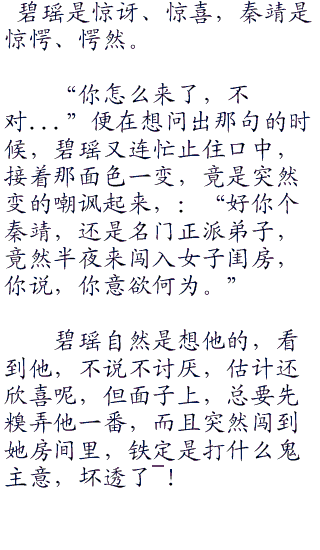 碧瑶是惊讶、惊喜，秦靖是
惊愕、愕然。
“你怎么来了，不
对...”便在想问出那句的时
候，碧瑶又连忙止住口中，
接着那面色一变，竟是突然
变的嘲讽起来，：“好你个
秦靖，还是名门正派弟子，
竟然半夜来闯入女子闺房，
你说，你意欲何为。”
碧瑶自然是想他的，看
到他，不说不讨厌，估计还
欣喜呢，但面子上，总要先
糗弄他一番，而且突然闯到
她房间里，铁定是打什么鬼
主意，坏透了¯！